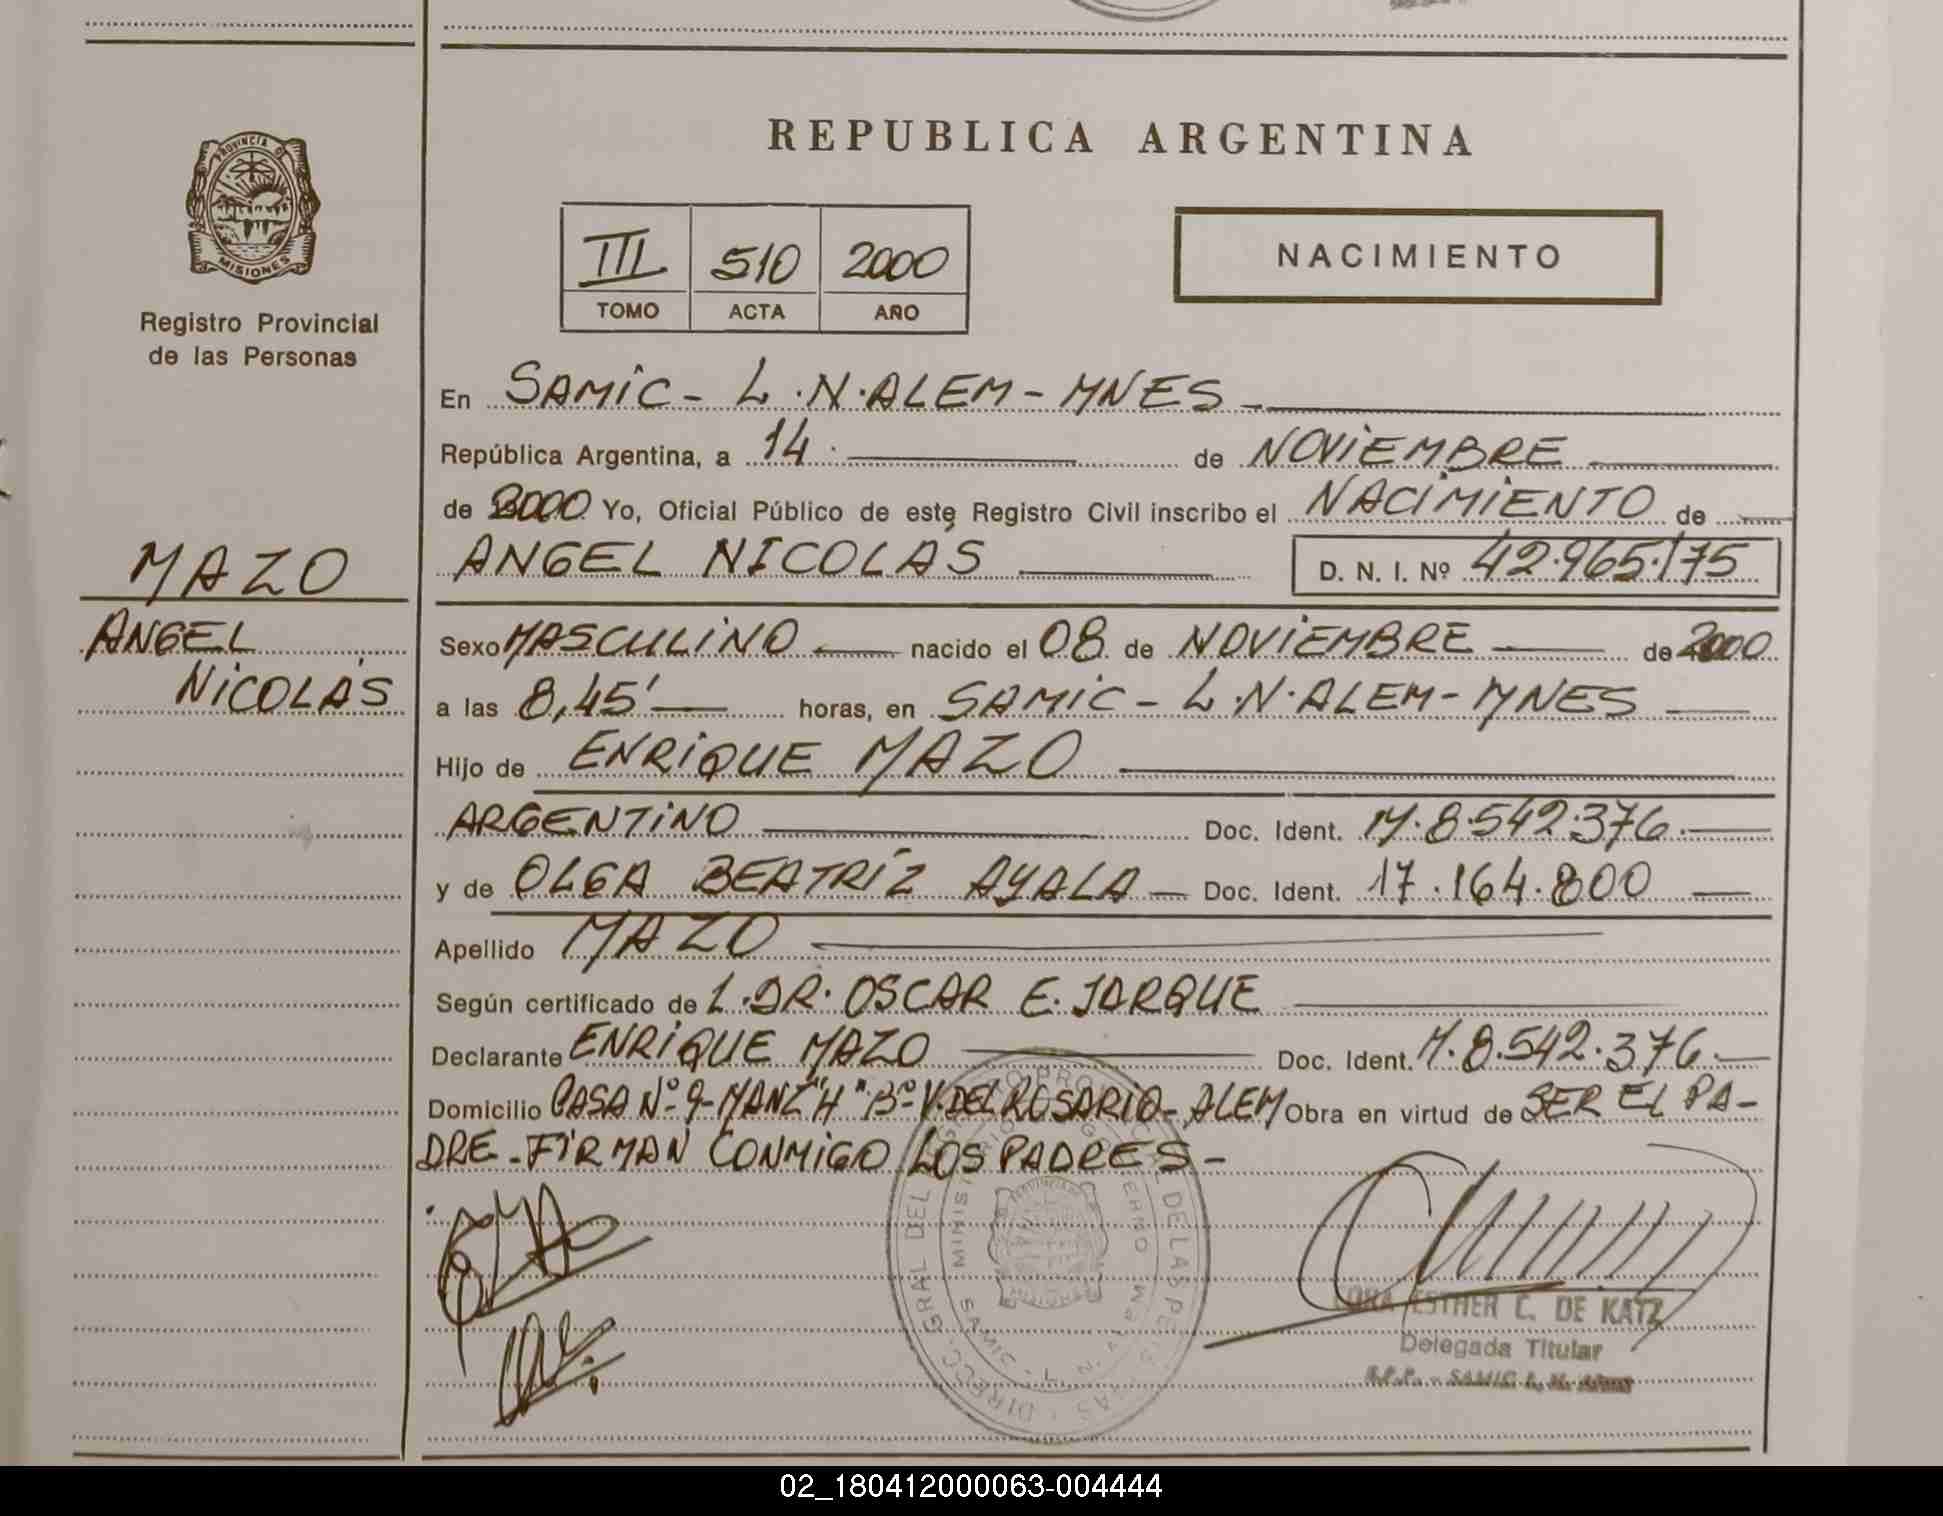 PROVINCIA DE
MISIONES
Registro Provincial
de las Personas
MAZO
ANGEL
NICOLÁS
REPUBLICA ARGENTINA
III 510 2000
TOMO ACTA AÑO
NACIMIENTO
En SAMIC - L.N.ALEM - MNES -
República Argentina, a 14. de NOVIEMBRE
de 2000 Yo, Oficial Público de este Registro Civil inscribo el NACIMIENTO de
ANGEL NICOLÁS D. N. I. Nº 42.965.175
Sexo MASCULINO nacido el 08 de NOVIEMBRE de 2000
a las 8,45' horas, en SAMIC - L.N.ALEM - MNES
Hijo de ENRIQUE MAZO
ARGENTINO Doc. Ident. M.8.542.376.
y de OLGA BEATRÍZ AYALA Doc. Ident. 17.164.800
Apellido MAZO
Según certificado de L.DR. OSCAR E. JARQUE
Declarante ENRIQUE MAZO Doc. Ident. M.8.542.376.
Domicilio CASA Nº 9-MANZ "H" Bº V.DEL ROSARIO - ALEM Obra en virtud de SER EL PA-
DRE - FIRMAN CONMIGO LOS PADRES -
ESTHER C. DE KATZ
Delegada Titular
R.P.P. - SAMIC L. N. Alem
02_180412000063-004444